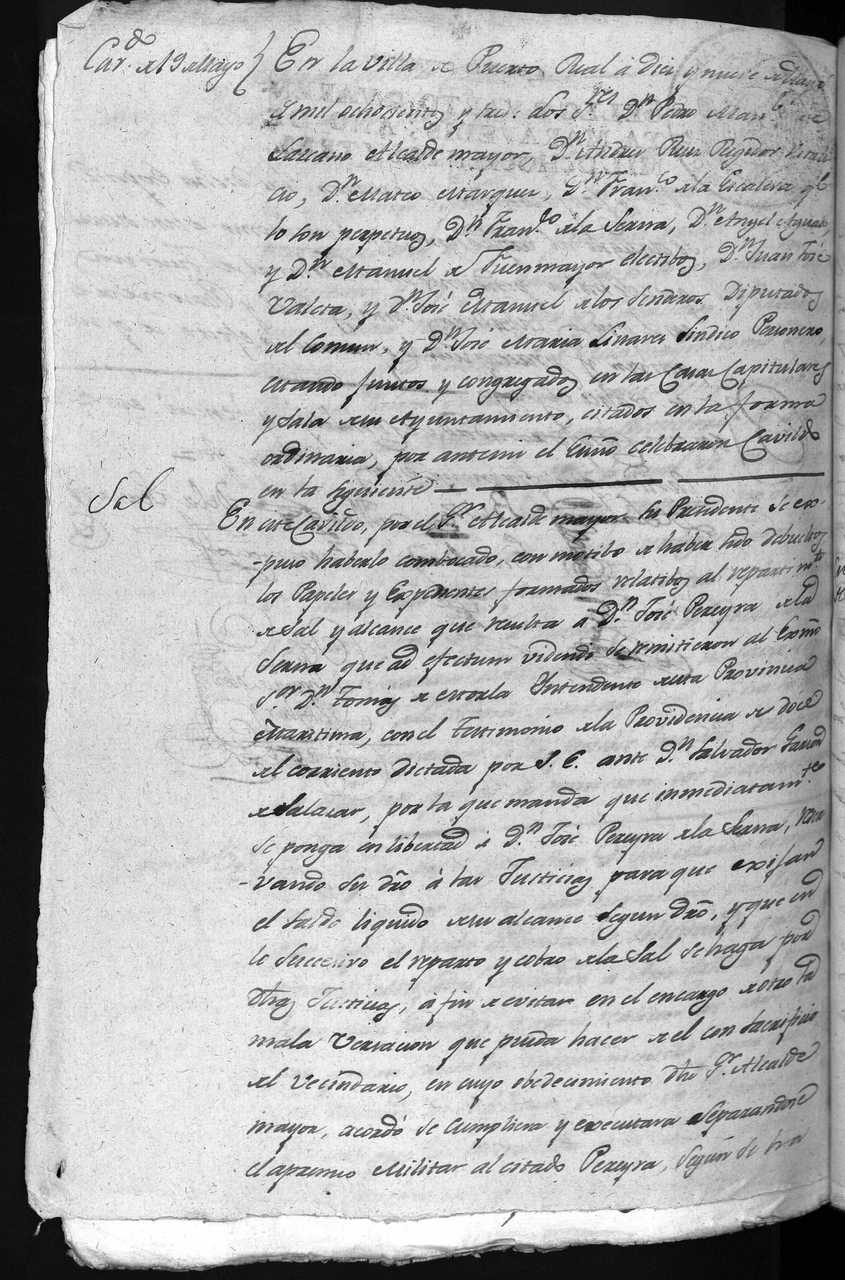 Cav.do de 19 de Mayo
En la villa de Puerto Real á diez y nueve de Mayo
de mil ochocientos y tres: los S.res D.n Pedro Man.l
Lazcano Alcalde mayor, D.n Andres Ruiz Regidor
cio, D.n Mateo Marquez, D.n Fran.co de la Escalera q.e
lo son perpetuos, D.n Fran.co de la Serna, D.n Angel
y D.n Manuel de Fuenmayor electibos, D.n Juan José
Valera, y D.n José Manuel de los Diputados
del Comun, y D.n José Maria Linares Sindico Personero,
estando juntos y congregados en las Casas Capitulares
y Sala de su Ayuntamiento, citados en la forma
ordinaria, por ante mi el Essno celebraron Cavildo
en la siguiente
Sal
En este Cavildo, por el S.or Alcalde mayor su Presidente se ex-
-puso haberlo combocado, con motibo de haber sido debueltos
los Papeles y Expedientes formados relatibos al repartim.to
de Sal y alcance que resulta a D.n José Pereyra de la
Serna que ad efectum videndo se remitieron al Exmo
S.or D.n Tomas de Morla Intendente de esta Provincia
Maritima, con el testimonio de la Providencia de doce
del corriente dictada por S. E. ante D.n Salvador Garcia
de Salazar, por la que manda que inmediatam.te
se ponga en libertad á D.n José Pereyra de la Serna, reser
-vando su dro á las Justicias para que exijan
el saldo liquido de su alcance segun dro, y que en
lo succesivo el reparto y cobro de la Sal se haga por
dhas Justicias, á fin de evitar en el encargo de otro la
mala versacion que pueda hacer de el con sacrificio
del vecindario, en cuyo obedecimiento dho S.or Alcalde
mayor, acordó se cumpliera y executara separandose
el apremio Militar al citado Pereyra, segun se